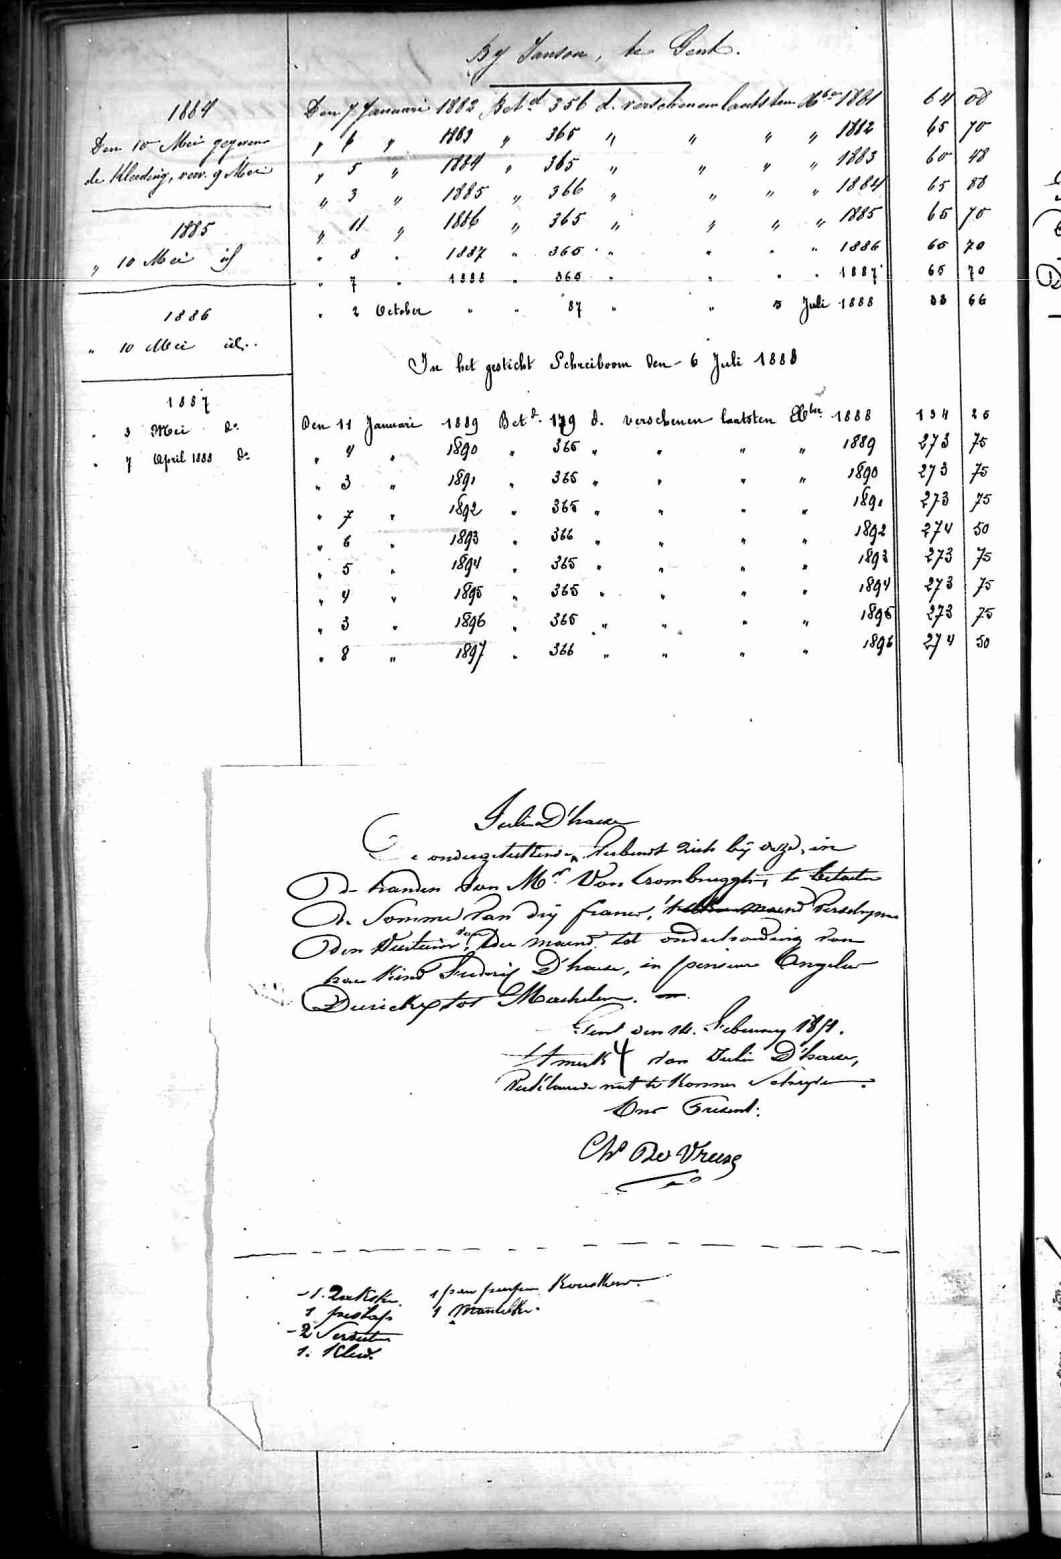 By Janson, te Gent.
1884
Den 10 Mei gegeven
de kleeding, verv. 9 Mei
1885
" 10 Mei id
1886
" 10 Mei id..
1887
" 3 Mei do
" 7 April 1888 do
Den 7 Januari 1882 Betd 356 d. verschenen laatsten Xber 1881 64 08
" 6 " 1883 " 365 " " " " 1882 65 70
" 5 " 1884 " 365 " " " " 1883 60 48
" 3 " 1885 " 366 " " " " 1884 65 88
" 11 " 1886 " 365 " " " " 1885 65 70
" 8 " 1887 " 365 " " " " 1886 65 70
" 7 " 1888 " 365 " " " " 1887 65 70
" 2 October " " 87 " " 5 Juli 1888 66
In het gesticht Schreiboom den 6 Juli 1888
Den 11 Januari 1889 Betd. 179 d. verschenen laatsten Xber 1888 134 25
" 4 " 1890 " 365 " " " " 1889 273 75
" 3 " 1891 " 365 " " " " 1890 273 75
" 7 " 1892 " 365 " " " " 1891 273 75
" 6 " 1893 " 366 " " " " 1892 274 50
" 5 " 1894 " 365 " " " " 1893 273 75
" 4 " 1895 " 365 " " " " 1894 273 75
" 3 " 1896 " 365 " " " " 1895 273 75
" 8 " 1897 " 366 " " " " 1896 274 50
Julie D'haese
De ondergeteekende, verbindt zich bij deze, in
de handen van Mr. Van Crombrugghe, te betalen
de Somme van dry francs,
den der maand tot onderhouding van
haer kind D'haese, in pensioen Angela
Durickx tot Machelen.
Gent den 14. February 18
't merk van Julie D'haese,
verklarende niet te konnen schryven.
Ons Present:
Chs De Vreese
1. 1 paer Kousken
1
- 2
1. Kleed.